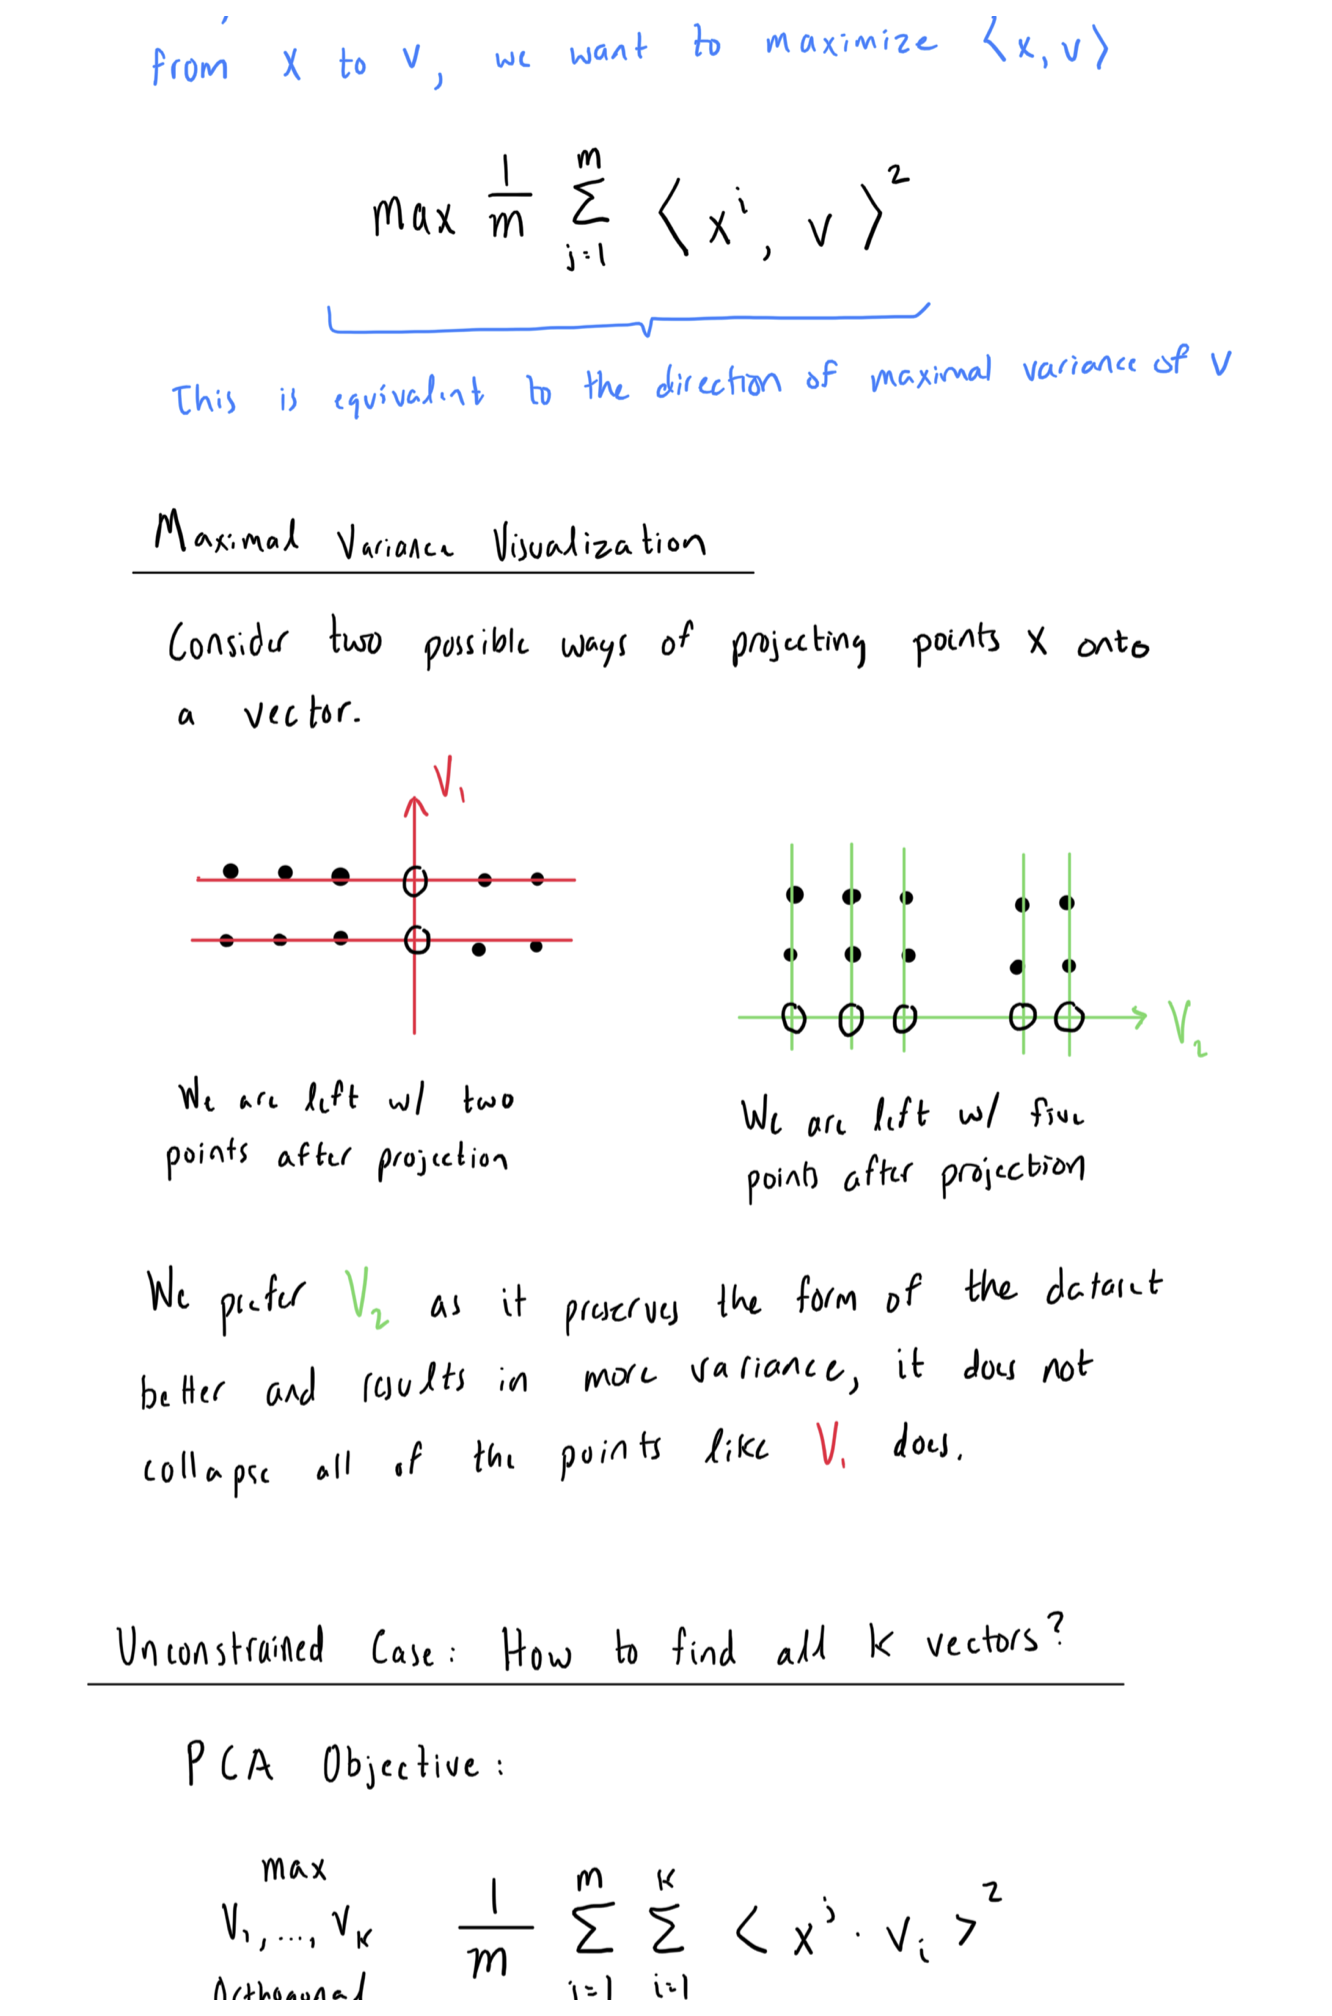 from x to v, we want to maximize ⟨x, v⟩
max 1/m Σ_{j=1}^{m} ⟨x^i, v⟩^2
This is equivalent to the direction of maximal variance of v
Maximal Variance Visualization
Consider two possible ways of projecting points x onto
a vector.
V_1
V_2
We are left w/ two
points after projection
We are left w/ five
points after projection
We prefer V_2 as it preserves the form of the dataset
better and results in more variance, it does not
collapse all of the points like V_1 does.
Unconstrained Case: How to find all K vectors?
PCA Objective:
max
V_1, ..., V_K 1/m Σ_{j=1}^{m} Σ_{i=1}^{K} <x^j · v_i>^2
Orthogonal